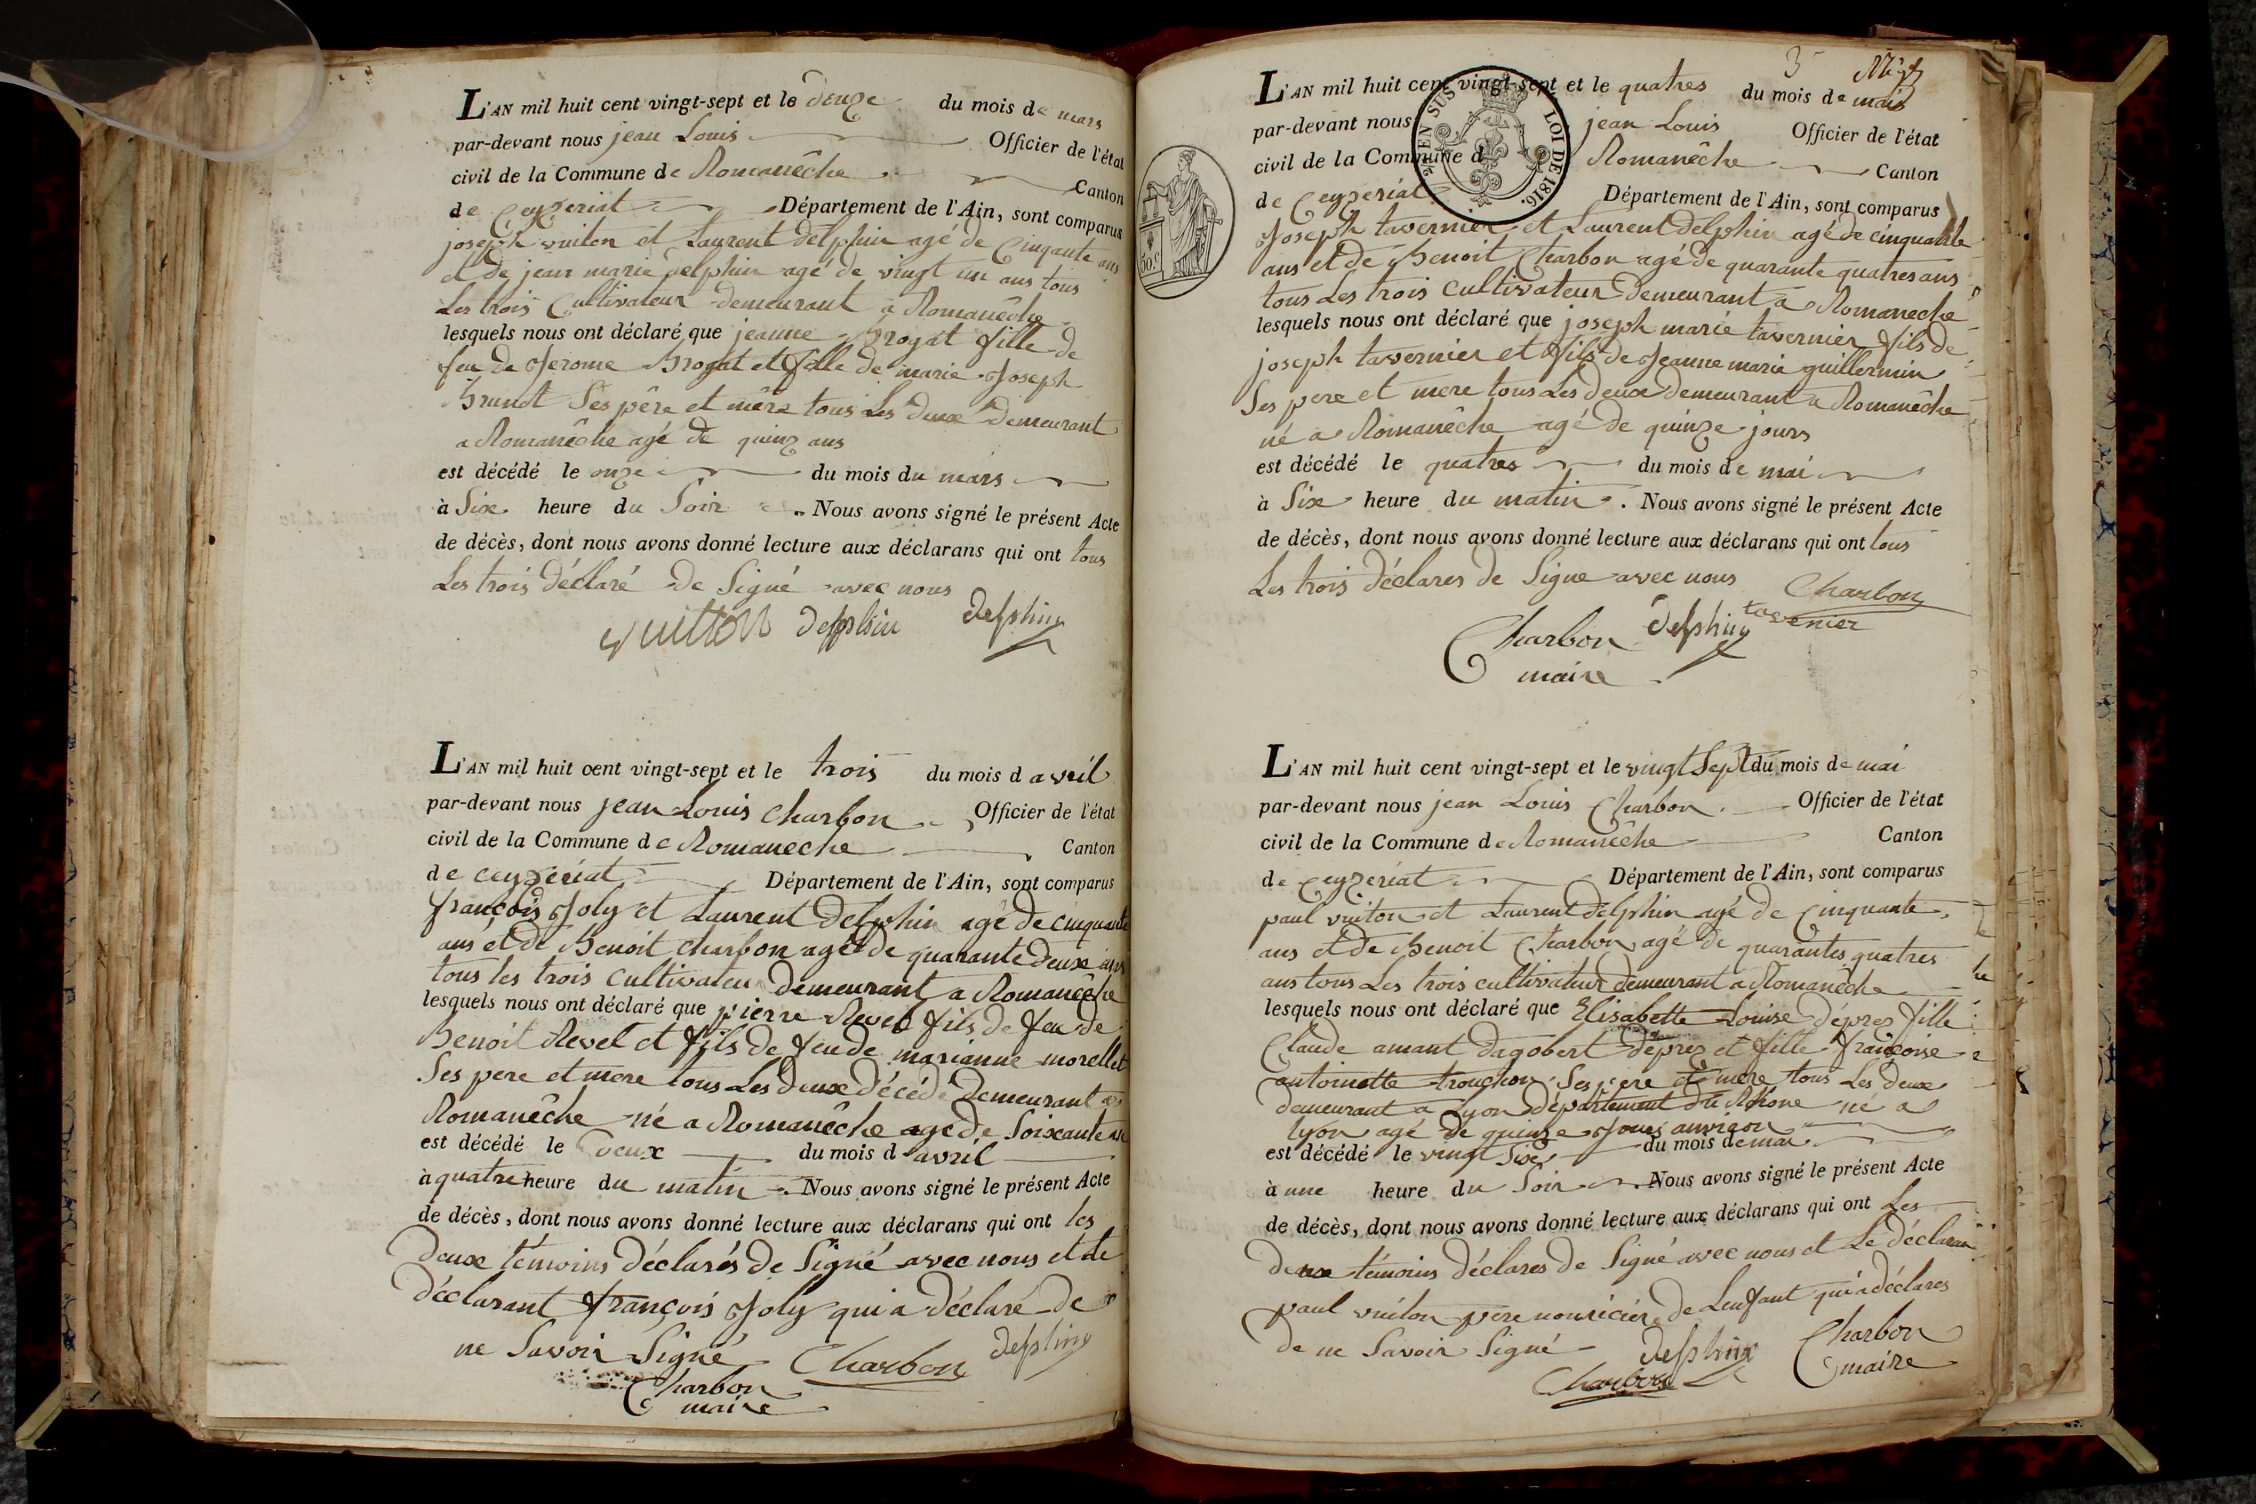 L'AN mil huit cent vingt-sept et le douze du mois de mars
par-devant nous jean Louis Officier de l'état
civil de la Commune de Romanêche Canton
de Ceyzeriat Département de l'Ain, sont comparus
joseph vuiton et Laurent delphin agé de Cinqante ans
et de jean marie delphin agé de vingt un ans tous
Les trois Cultivateur demeurant a Romanêche
lesquels nous ont déclaré que jeanne Brogat fille de
feu de Jerome Brogat et fille de marie Joseph
Brunet Ses pêre et mêre tous Les deux Demeurant
a Romanêche agé de quinz ans
est décédé le onze du mois du mars
à Six heure du Soir . Nous avons signé le présent Acte
de décès, dont nous avons donné lecture aux déclarans qui ont tous
Les trois déclaré de Signé avec nous
vuitton delphin delphin
L'AN mil huit cent vingt-sept et le trois du mois d avril
par-devant nous jean Louis Charbon Officier de l'état
civil de la Commune de Romaneche Canton
de ceyzériat Département de l'Ain, sont comparus
françois Joly et Laurent delphin agé de cinquante
ans et de Benoit charbon agé de quarante deux ans
tous les trois cultivateur demeurant a Romanêche
lesquels nous ont déclaré que pierre Revel fils de feu de
Benoit Revel et fils de feu de marianne morellet
Ses pere et mere tous Les deux décédé Demeurant a
Romanêche né a Romanêche agé de Soixante
est décédé le deux du mois d avril
à quatre heure du matin . Nous avons signé le présent Acte
de décès, dont nous avons donné lecture aux déclarans qui ont les
deux témoins déclarés de Signé avec nous et le
déclarant françois Joly qui a déclaré de
ne Savoir Signé Charbon delphin
Charbon
maire
3
L'AN mil huit cent vingt-sept et le quatres du mois de mai
par-devant nous jean Louis Officier de l'état
civil de la Commune d Romanêche Canton
de Ceyzeriat Département de l'Ain, sont comparus
Joseph tavernier et Laurent delphin agé de cinquante
ans et de Benoit Charbon agé de quarante quatres ans
tous Les trois cultivateur demeurant a Romaneche
lesquels nous ont déclaré que joseph marie tavernier fils de
joseph tavernier et fils de Jeanne marie guillermin
Ses pere et mere tous Les deux demeurant a Romanêche
né a Romanêche agé de quinze jours
est décédé le quatres du mois de mai
à Six heure du matin . Nous avons signé le présent Acte
de décès, dont nous avons donné lecture aux déclarans qui ont tous
Les trois déclares de Signe avec nous Charbon
Charbon delphin tavernier
maire
EN SUS LOI DE 1816.
50.c
L'AN mil huit cent vingt-sept et le vingt Sept du mois de mai
par-devant nous jean Louis Charbon Officier de l'état
civil de la Commune de Romanêche Canton
de Ceyzeriat Département de l'Ain, sont comparus
paul vuiton et Laurent delphin agé de Cinquante
ans et de Benoit Charbon agé de quarantes quatres
ans tous Les trois cultivateur demeurant a Romanêche
lesquels nous ont déclaré que Elisabette Louise déprez fille
Claude amant dagobert déprez et fille françoise
antoinette tronchon Ses pere et mere tous Les deux
demeurant a Lyon département du Rhone né a
lyon agé de quinze Jours anviron
est décédé le vingt Six du mois de mai
à une heure du Soir . Nous avons signé le présent Acte
de décès, dont nous avons donné lecture aux déclarans qui ont Les
deux témoins déclares de Signé avec nous et Le déclaran
paul vuiton pere nouricier de Lenfant qui a déclares
de ne Savoir Signé delphin Charbon
Charbon maire